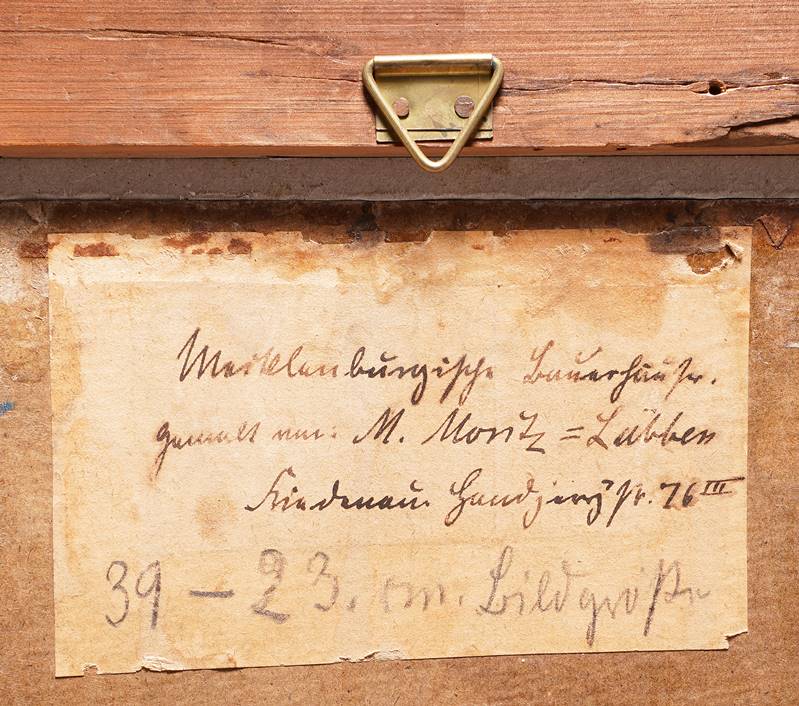 Mecklenburgische Bauerhäuser.
gemalt von: M. Moritz = Lübben
Friedenau. Handjerystr. 76 III
39 — 23. cm. Bildgröße